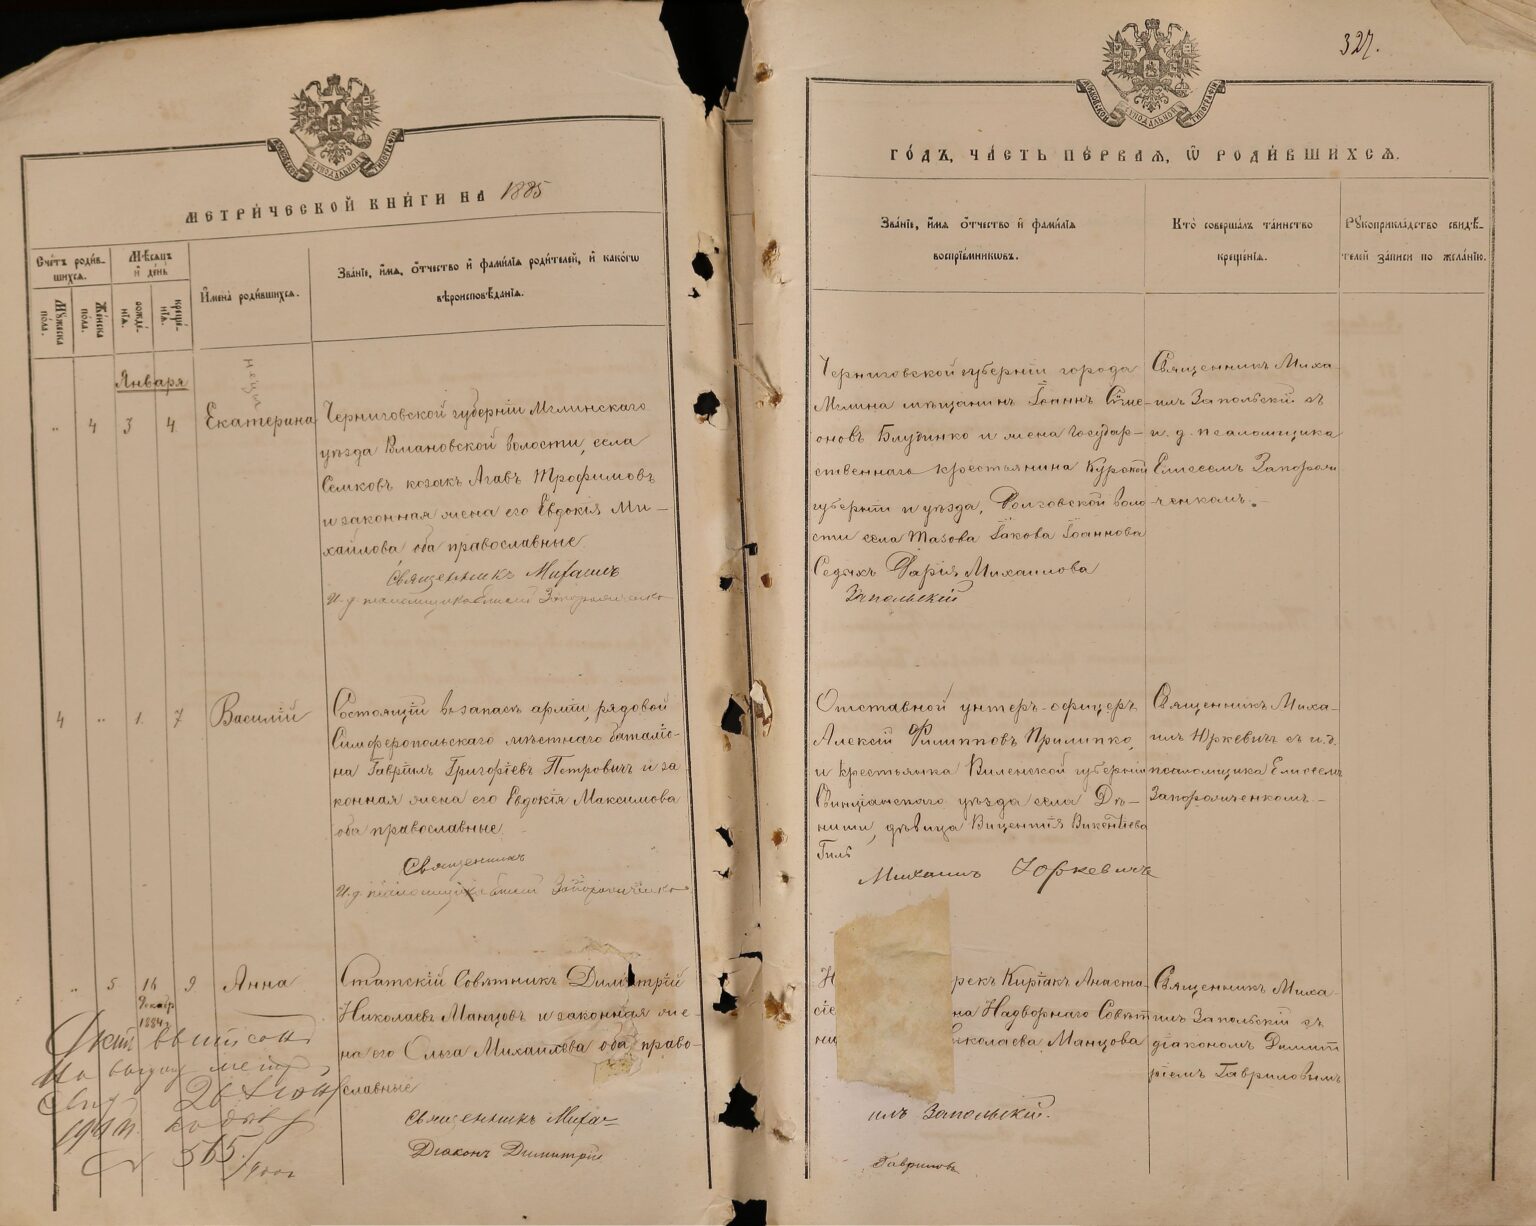 327.
МЕТРИ́ЧЕСКОЙ КНИ́ГИ НА 1885
ГО́ДЪ, ЧА́СТЬ ПЕ́РВАЯ, Ѡ҆ РОДИ́ВШИХСЯ.
Сче́тъ роди́в-
шихся.
Мꙋ́жеска по́ла.
Же́нска по́ла.
Мѣ́сяцъ и҆ де́нь
рожде́-
нія.
креще́-
нія.
И҆мена̀ роди́вшихся.
Зва́ніе, и҆́мя, ѻ҆́тчество и҆ фами́лія роди́телей, и҆ како́гѡ
вѣроисповѣ́данія.
Зва́ніе, и҆́мя ѻ҆́тчество и҆ фами́лія
воспрїе́мниковъ.
Кто̀ соверша́лъ та́инство
креще́нія.
Рꙋкоприкла́дство свидѣ́-
телей за́писи по жела́нію.
Января
„ 4 3 4
Екатерина
Черниговской губерніи Мглинскаго
уѣзда волости, села
козакъ Трофимовъ
и законная жена его Евдокія Ми-
хайлова оба православные.
Священникъ Михаилъ
И. д. псаломщика Елисей Запорожченко
Черниговской губерніи города
Мглина мѣщанинъ Іоаннъ Симе-
оновъ и жена Государ-
ственнаго крестьянина Курской
губерніи и уѣзда, воло-
сти села Тазова Іакова Іоаннова
Седыхъ Дарія Михаилова
Запольскій
Священникъ Миха-
илъ Запольскій съ
и. д. псаломщика
Елисеемъ Запорож-
ченкомъ.
4 „ 1. 7
Василій
Состоящій въ запасѣ арміи, рядовой
Симферопольскаго мѣстнаго баталіо-
на Гавріилъ Григоріевъ Петровичъ и за
конная жена его Евдокія Максимова
оба православные.
Священникъ
И. д. псаломщика Елисей Запорожченко
Отставной унтеръ-офицеръ
Алексій Филипповъ Прилипко,
и крестьянка Виленской губерніи
Свинцянскаго уѣзда села Дѣ-
ниши, дѣвица Викентіева
Гиль
Михаилъ Юркевичъ
Священникъ Миха-
илъ Юркевичъ съ и. д.
псаломщика Елисеемъ
Запорожченкомъ.
„ 5 16 9
Декабр
1884 г
Анна
Статскій Совѣтникъ Димитрій
Николаевъ Манцовъ и законная же-
на его Ольга Михайлева оба право-
славные
Священникъ Миха-
Діаконъ Димитрій
Кириакъ Анаста-
сіе на Надворнаго Совѣт
ни иколаева Манцова
илъ Запольскій.
Гавриловъ
Священникъ Миха-
илъ Запольскій съ
діакономъ Димит
ріемъ Гавриловымъ
565